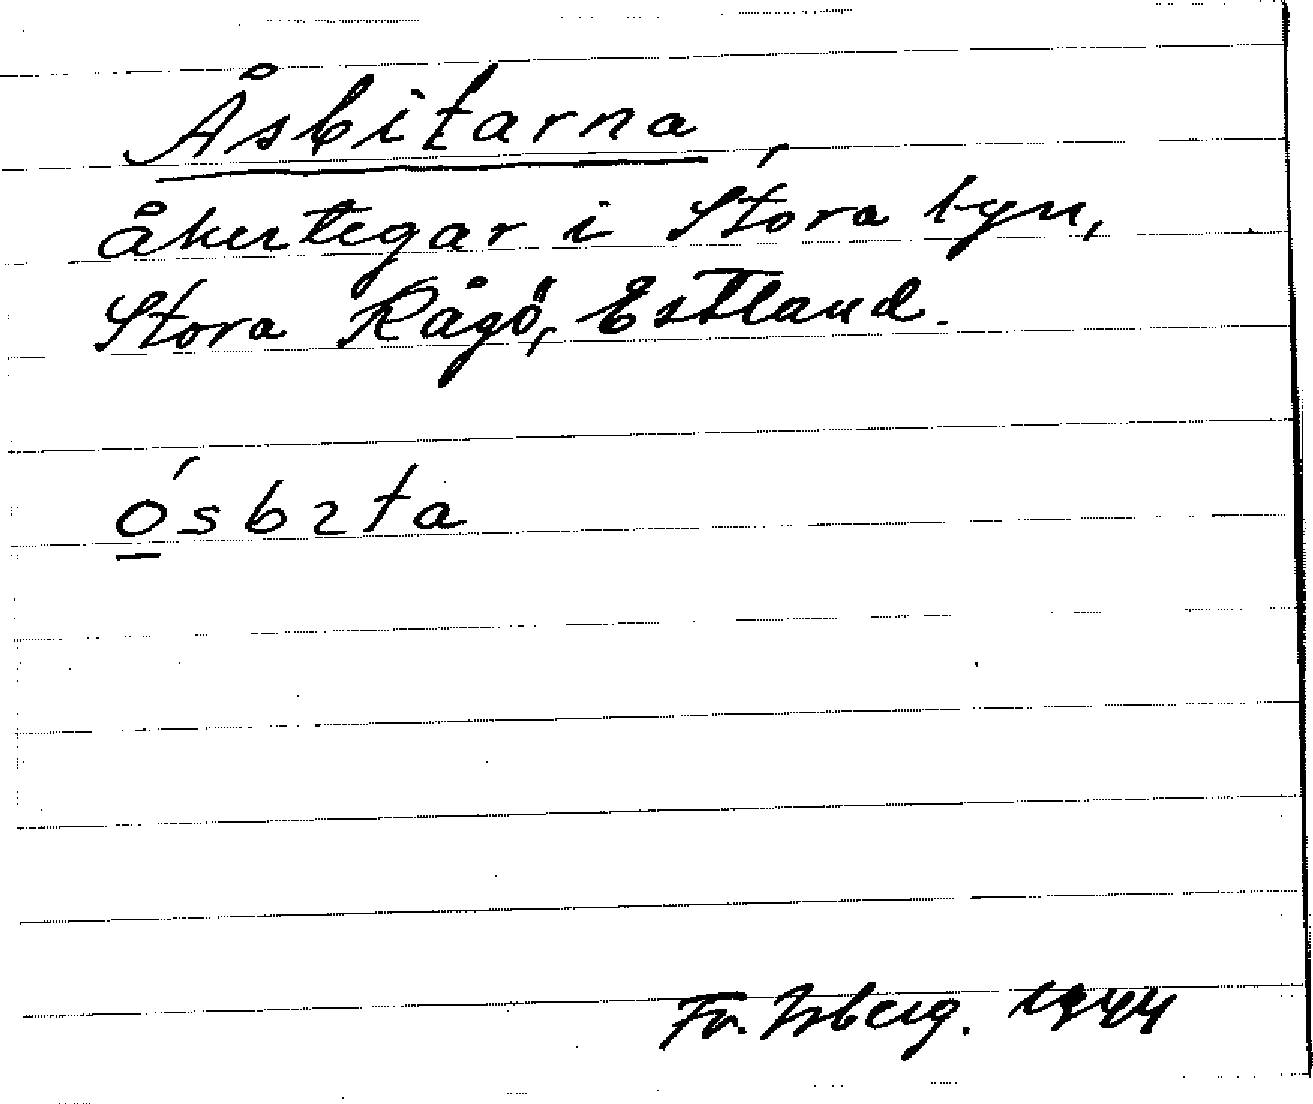 Åsbitarna,
åkertegar i Stora byn,
Stora Rågö, Estland.
ó̲sbɩta
Fr. Isberg. 1944